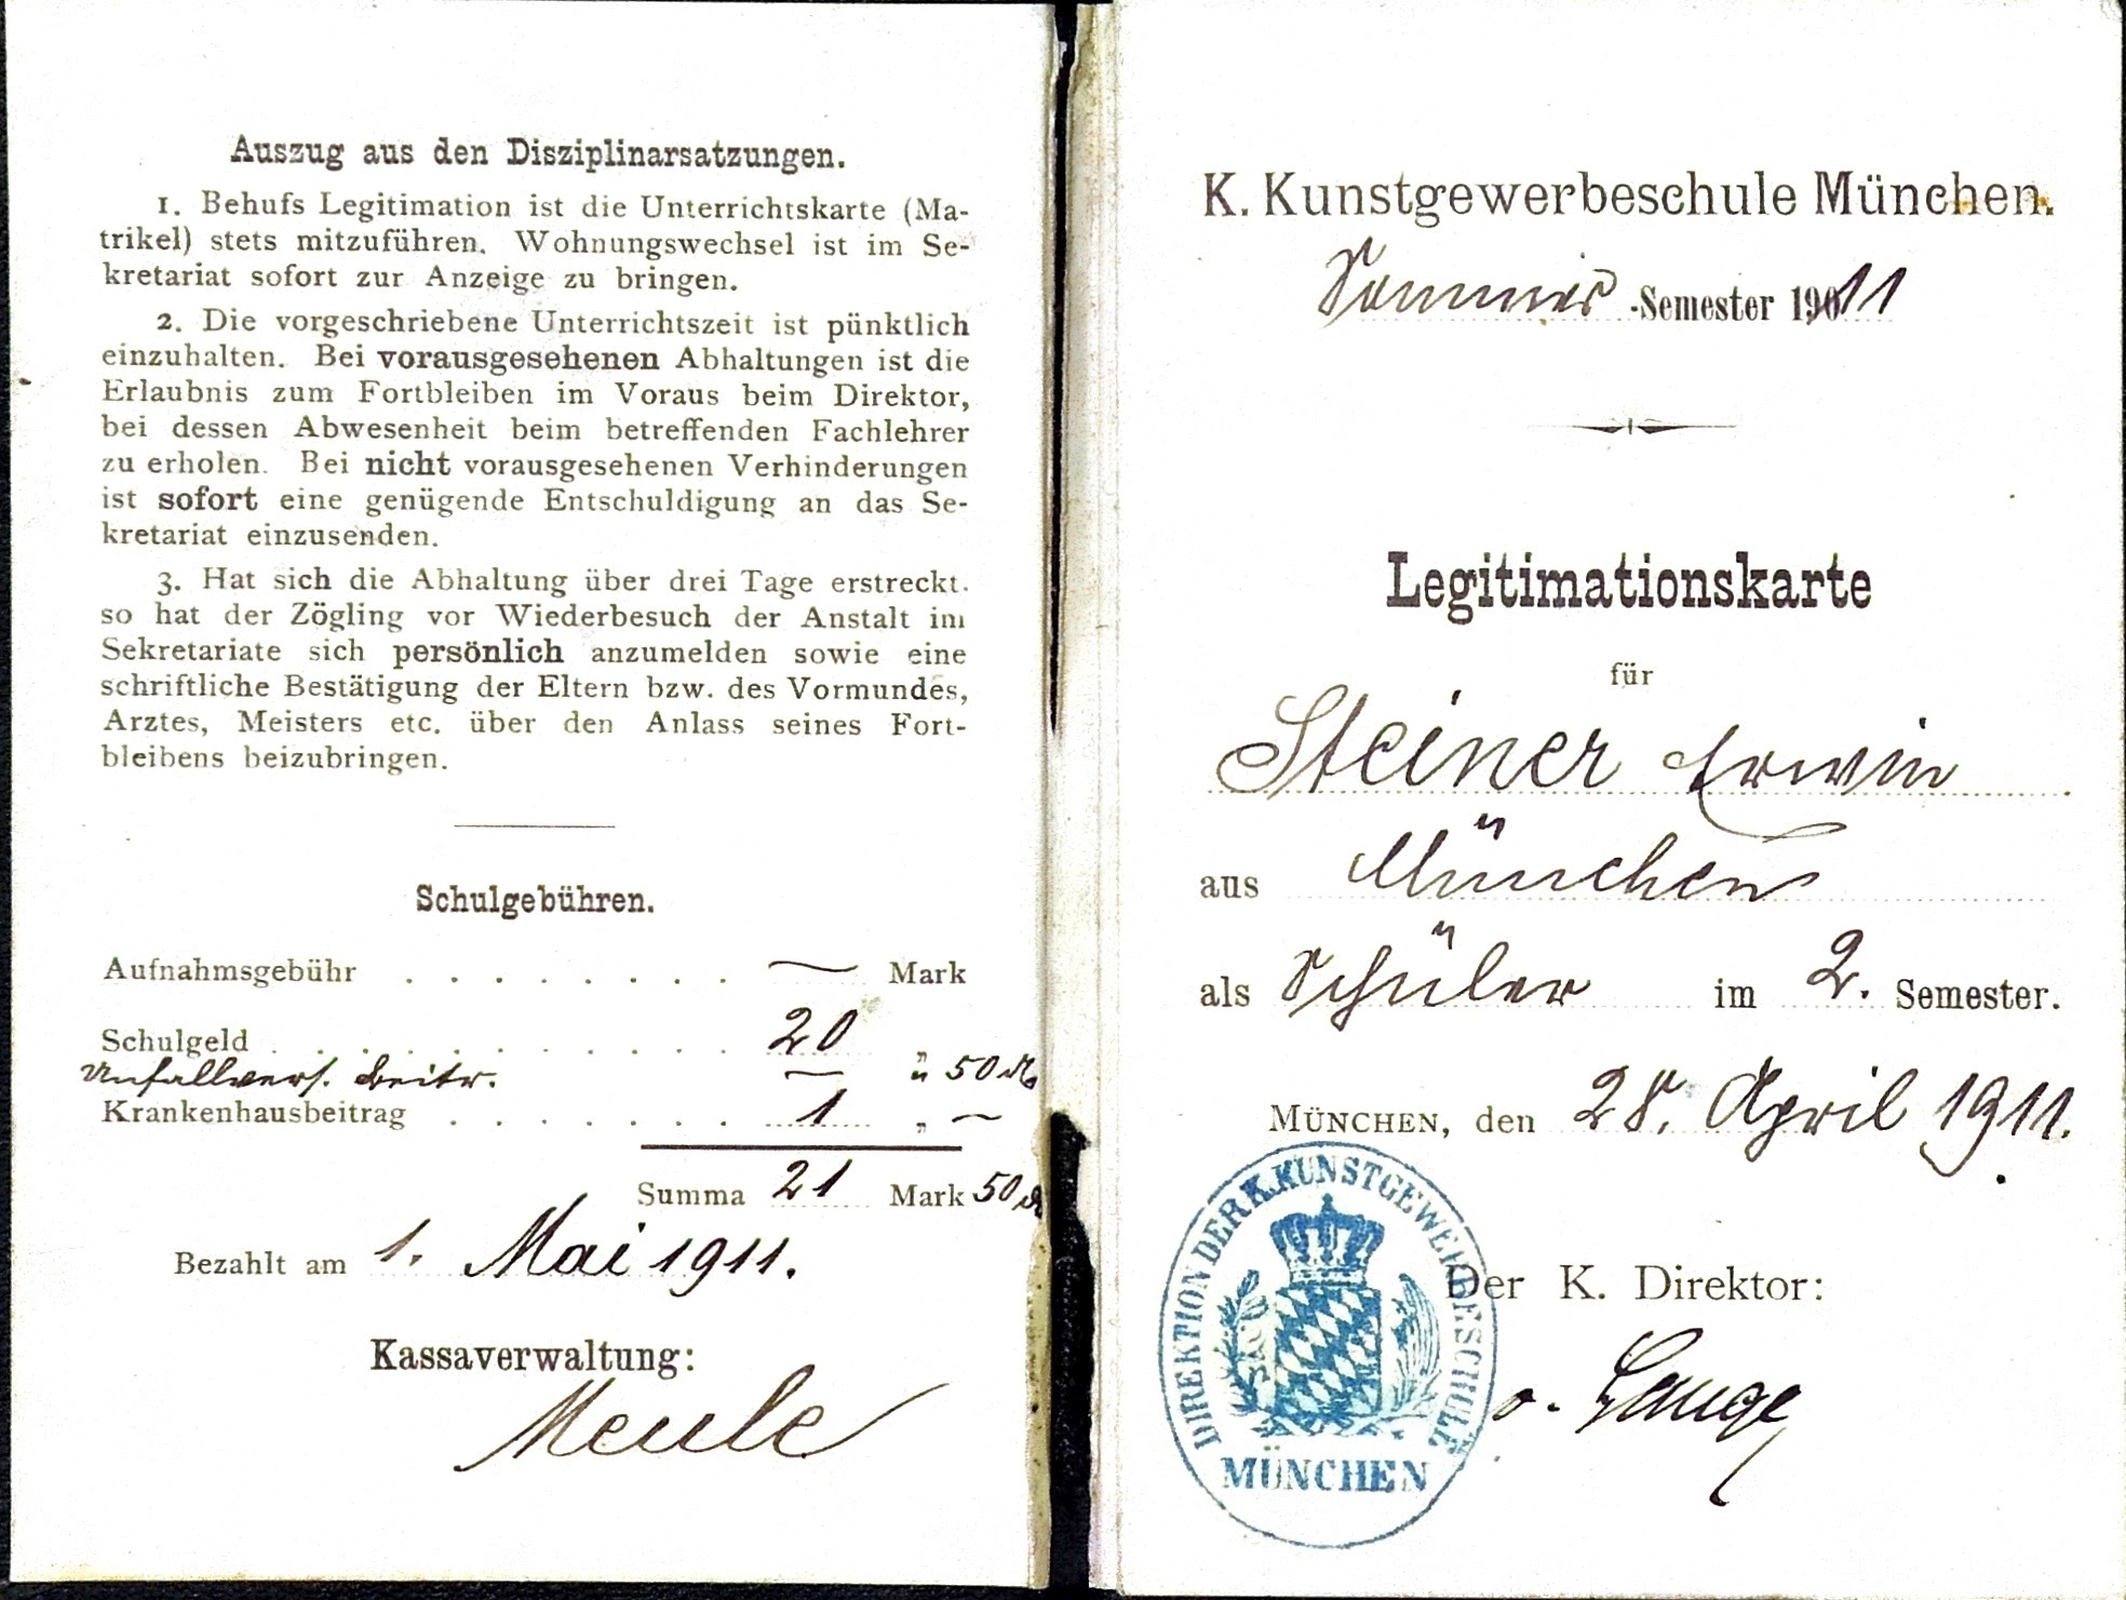 Auszug aus den Disziplinarsatzungen.
1. Behufs Legitimation ist die Unterrichtskarte (Ma-
trikel) stets mitzuführen. Wohnungswechsel ist im Se-
kretariat sofort zur Anzeige zu bringen.
2. Die vorgeschriebene Unterrichtszeit ist pünktlich
einzuhalten. Bei vorausgesehenen Abhaltungen ist die
Erlaubnis zum Fortbleiben im Voraus beim Direktor,
bei dessen Abwesenheit beim betreffenden Fachlehrer
zu erholen. Bei nicht vorausgesehenen Verhinderungen
ist sofort eine genügende Entschuldigung an das Se-
kretariat einzusenden.
3. Hat sich die Abhaltung über drei Tage erstreckt.
so hat der Zögling vor Wiederbesuch der Anstalt im
Sekretariate sich persönlich anzumelden sowie eine
schriftliche Bestätigung der Eltern bzw. des Vormundes,
Arztes, Meisters etc. über den Anlass seines Fort-
bleibens beizubringen.
Schulgebühren.
Aufnahmsgebühr . . . . . . . . — Mark
Schulgeld . . . . . . . . . . 20 "
Unfallvers. Beitr. — " 50 ₰
Krankenhausbeitrag . . . . . . . 1 " —
Summa 21 Mark 50 ₰
Bezahlt am 1. Mai 1911.
Kassaverwaltung:
K. Kunstgewerbeschule München.
Sommer-Semester 1911
Legitimationskarte
für
Steiner Erwin
aus München
als Schüler im 2. Semester.
MÜNCHEN, den 28. April 1911.
DIREKTION DER K. KUNSTGEWERBESCHULE
MÜNCHEN
Der K. Direktor:
v. Lange